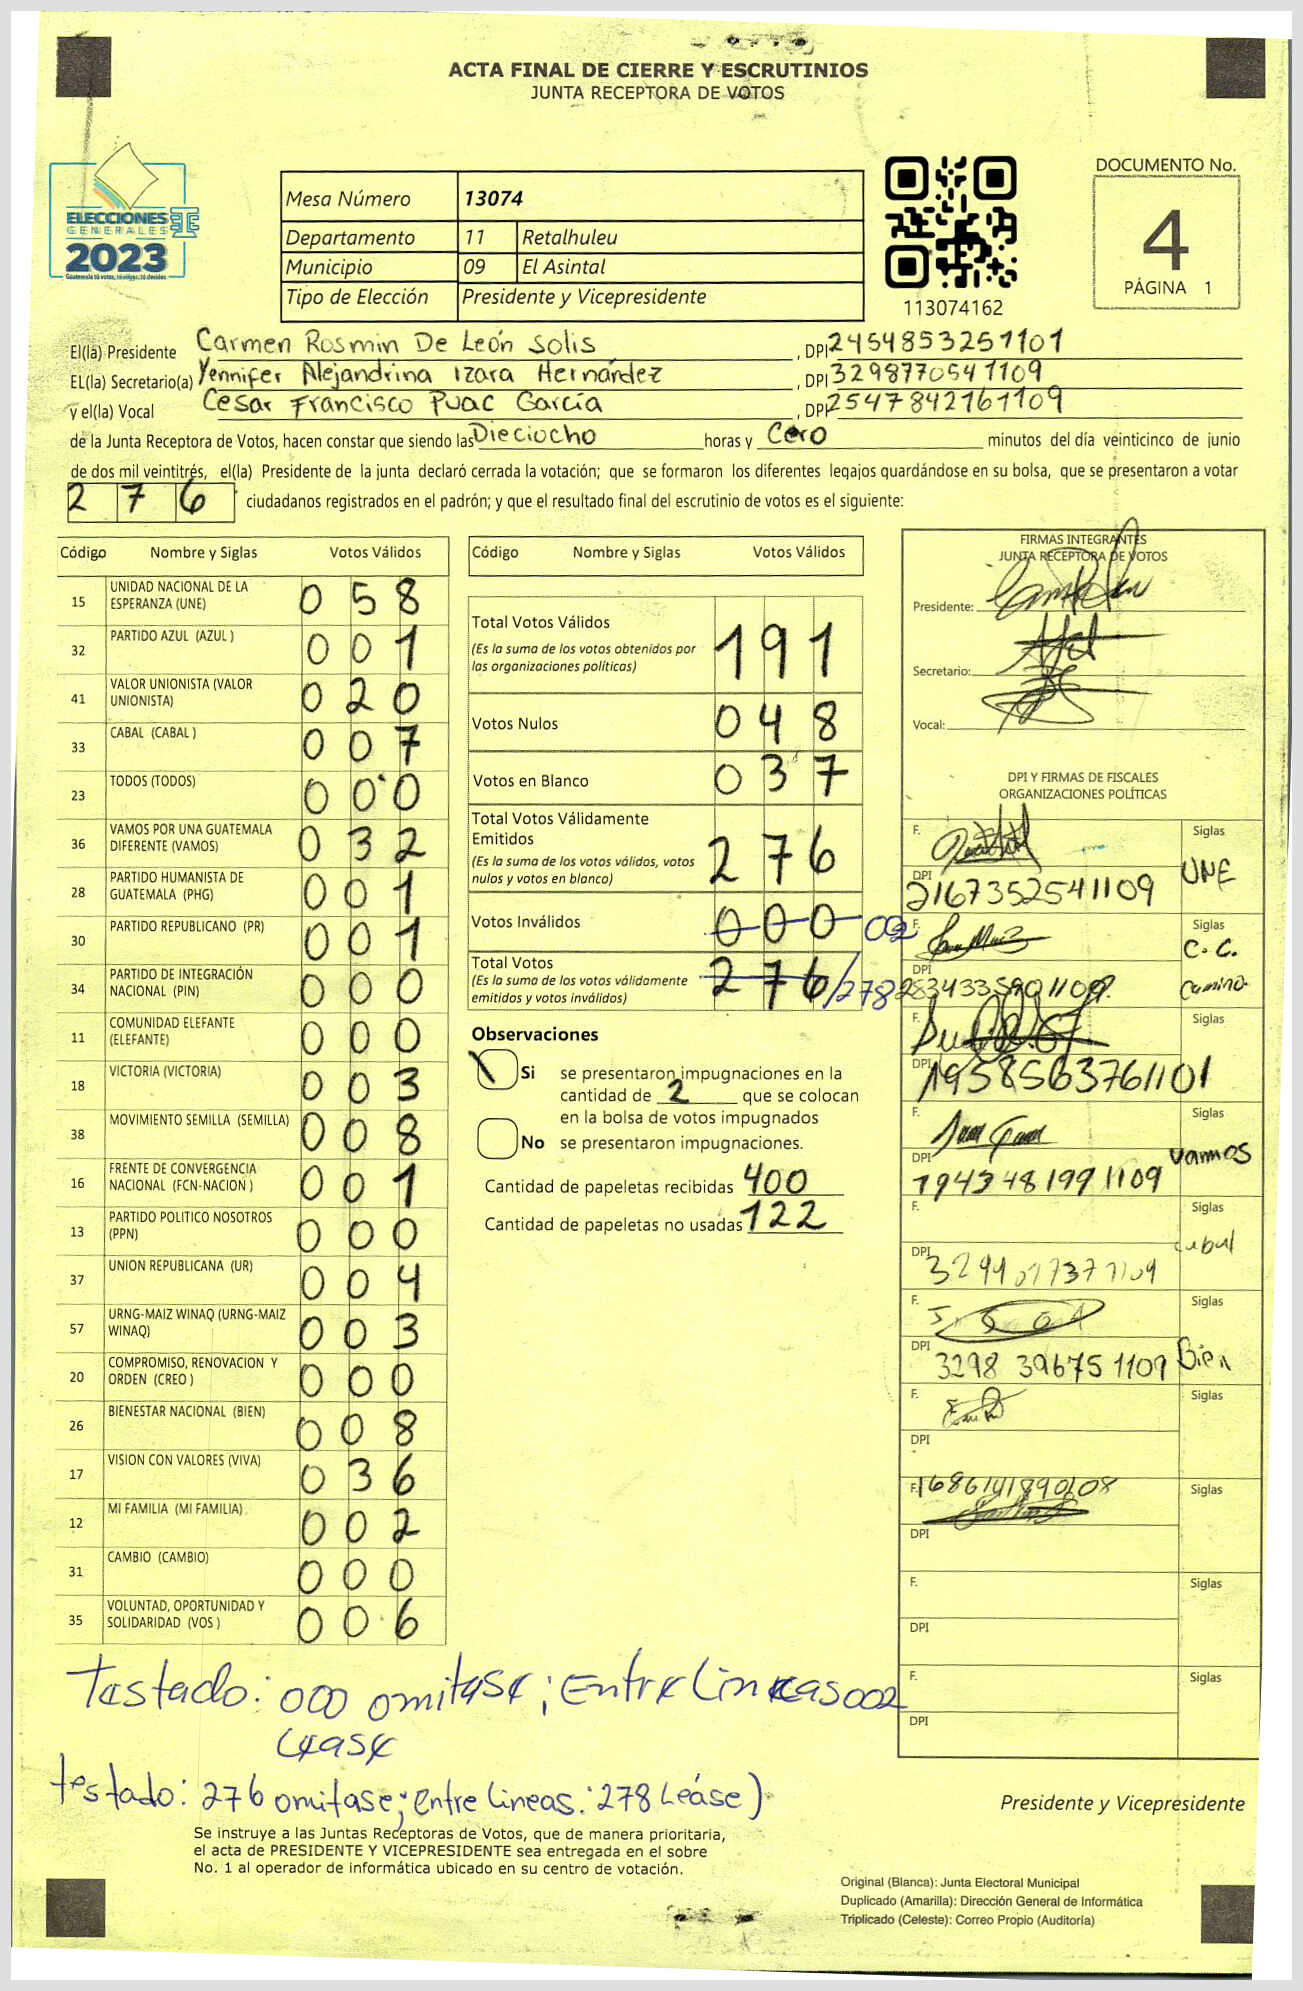 ACTA FINAL DE CIERRE Y ESCRUTINIOS
JUNTA RECEPTORA DE VOTOS
ELECCIONES
GENERALES
2023
Guatemala tú votas, tú eliges, tú decides
Mesa Número 13074
Departamento 11 Retalhuleu
Municipio 09 El Asintal
Tipo de Elección Presidente y Vicepresidente
113074162
DOCUMENTO No.
4
PÁGINA 1
El(la) Presidente Carmen Rosmin De León Solis, DPI 2454853251101
EL(la) Secretario(a) Yennifer Alejandrina Izara Hernández, DPI 3298770541109
y el(la) Vocal Cesar Francisco Puac García, DPI 2547842161109
de la Junta Receptora de Votos, hacen constar que siendo las Dieciocho horas y Cero minutos del día veinticinco de junio
de dos mil veintitrés, el(la) Presidente de la junta declaró cerrada la votación; que se formaron los diferentes legajos guardándose en su bolsa, que se presentaron a votar
276 ciudadanos registrados en el padrón; y que el resultado final del escrutinio de votos es el siguiente:
Código Nombre y Siglas Votos Válidos
15 UNIDAD NACIONAL DE LA ESPERANZA (UNE) 058
32 PARTIDO AZUL (AZUL ) 001
41 VALOR UNIONISTA (VALOR UNIONISTA) 020
33 CABAL (CABAL ) 007
23 TODOS (TODOS) 000
36 VAMOS POR UNA GUATEMALA DIFERENTE (VAMOS) 032
28 PARTIDO HUMANISTA DE GUATEMALA (PHG) 001
30 PARTIDO REPUBLICANO (PR) 001
34 PARTIDO DE INTEGRACIÓN NACIONAL (PIN) 000
11 COMUNIDAD ELEFANTE (ELEFANTE) 000
18 VICTORIA (VICTORIA) 003
38 MOVIMIENTO SEMILLA (SEMILLA) 008
16 FRENTE DE CONVERGENCIA NACIONAL (FCN-NACION ) 001
13 PARTIDO POLITICO NOSOTROS (PPN) 000
37 UNION REPUBLICANA (UR) 004
57 URNG-MAIZ WINAQ (URNG-MAIZ WINAQ) 003
20 COMPROMISO, RENOVACION Y ORDEN (CREO ) 000
26 BIENESTAR NACIONAL (BIEN) 008
17 VISION CON VALORES (VIVA) 036
12 MI FAMILIA (MI FAMILIA) 002
31 CAMBIO (CAMBIO) 000
35 VOLUNTAD, OPORTUNIDAD Y SOLIDARIDAD (VOS ) 006
Código Nombre y Siglas Votos Válidos
Total Votos Válidos 191
(Es la suma de los votos obtenidos por
las organizaciones políticas)
Votos Nulos 048
Votos en Blanco 037
Total Votos Válidamente
Emitidos 276
(Es la suma de los votos válidos, votos
nulos y votos en blanco)
Votos Inválidos 000 002
Total Votos 276/278
(Es la suma de los votos válidamente
emitidos y votos inválidos)
Observaciones
Si se presentaron impugnaciones en la
cantidad de 2 que se colocan
en la bolsa de votos impugnados
No se presentaron impugnaciones.
Cantidad de papeletas recibidas 400
Cantidad de papeletas no usadas 122
FIRMAS INTEGRANTES
JUNTA RECEPTORA DE VOTOS
Presidente:
Secretario:
Vocal:
DPI Y FIRMAS DE FISCALES
ORGANIZACIONES POLÍTICAS
F. Siglas
DPI 2167352541109 UNE
F. Siglas
C.C.
DPI Camino
F. Siglas
DPI 1958563761101
F. Siglas
DPI 1943481991109 Vamos
F. Siglas
DPI cabal
F. Siglas
DPI 3298396751109 Bien
F. Siglas
DPI
F. 1686141890108 Siglas
DPI
F. Siglas
DPI
F. Siglas
DPI
Testado: 000 omitase; Entre Lineas 002
Lease
testado: 276 omitase; Entre lineas: 278 Leáse)
Presidente y Vicepresidente
Se instruye a las Juntas Receptoras de Votos, que de manera prioritaria,
el acta de PRESIDENTE Y VICEPRESIDENTE sea entregada en el sobre
No. 1 al operador de informática ubicado en su centro de votación.
Original (Blanca): Junta Electoral Municipal
Duplicado (Amarilla): Dirección General de Informática
Triplicado (Celeste): Correo Propio (Auditoría)